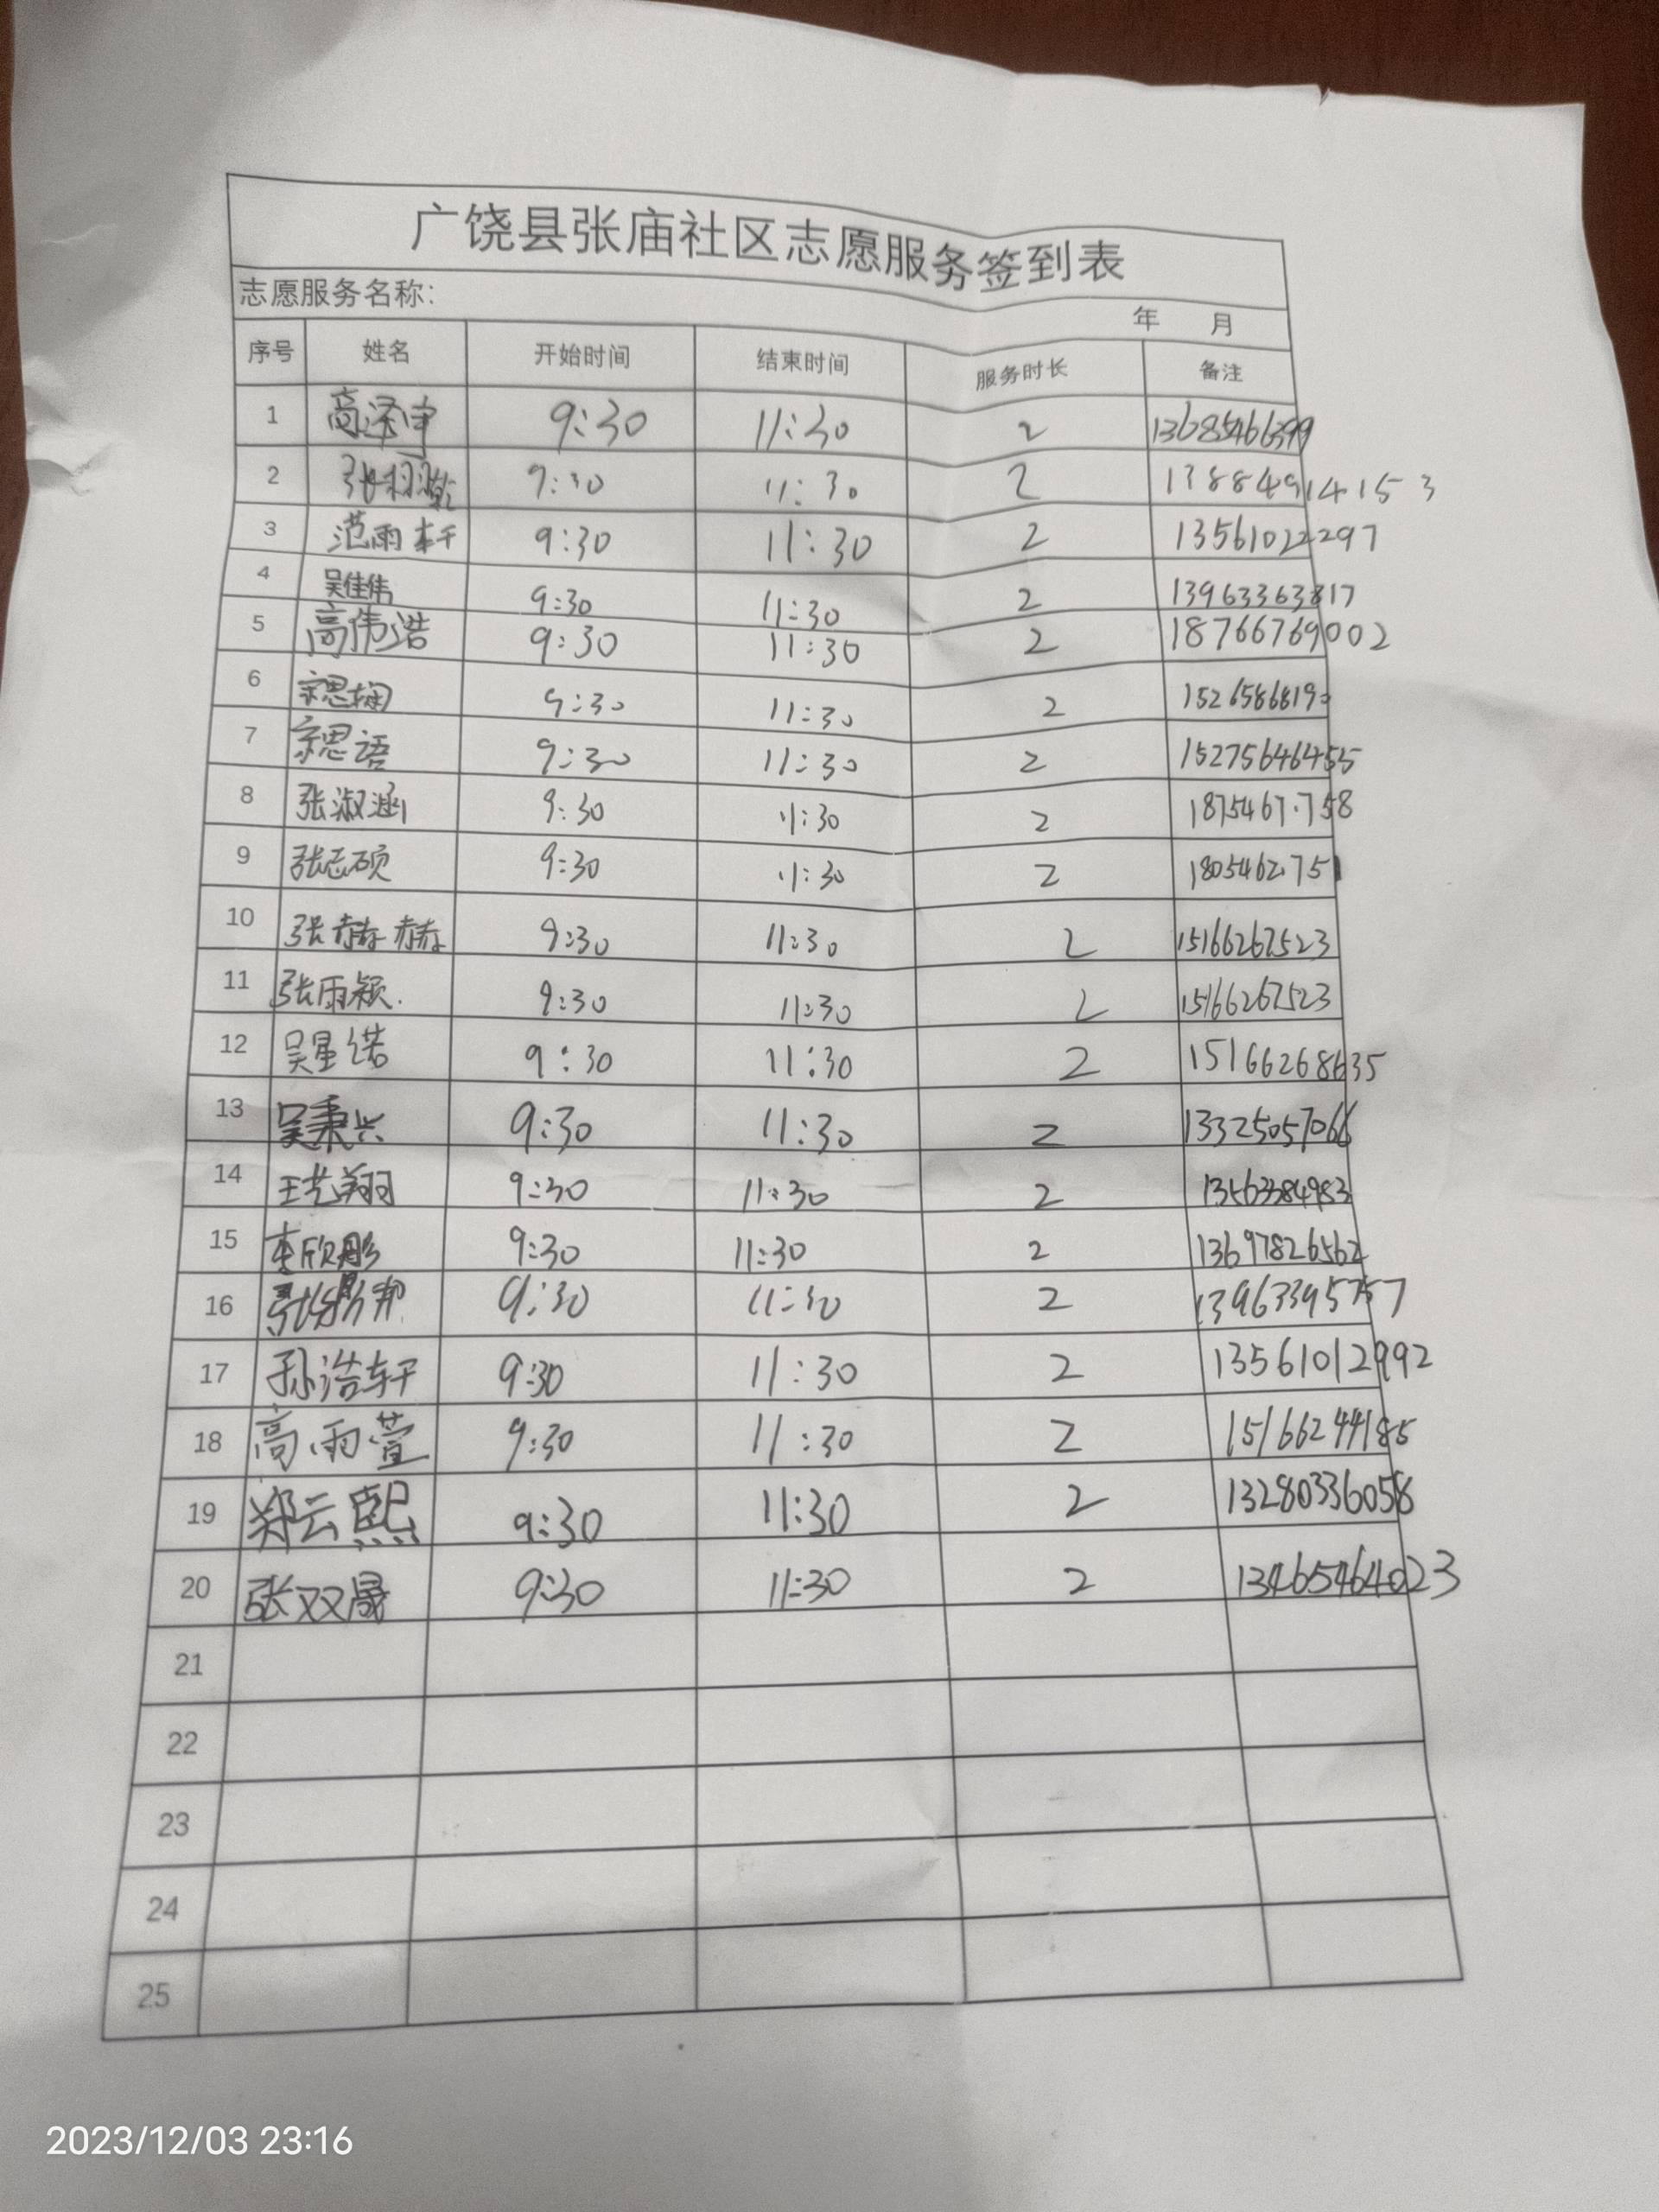 广饶县张庙社区志愿服务签到表
志愿服务名称:
年 月
序号 姓名 开始时间 结束时间 服务时长 备注
1 高泽宇 9:30 11:30 2 13685466399
2 9:30 11:30 2 13884914153
3 范雨轩 9:30 11:30 2 13561022297
4 吴佳伟 9:30 11:30 2 13963363817
5 高伟浩 9:30 11:30 2 18766769002
6 9:30 11:30 2 15265868190
7 宗思语 9:30 11:30 2 15275646455
8 张淑涵 9:30 11:30 2
9 张志硕 9:30 11:30 2
10 张赫赫 9:30 11:30 2 15166267523
11 张雨颖. 9:30 11:30 2 15166267523
12 吴星诺 9:30 11:30 2 15166268635
13 吴秉兴 9:30 11:30 2 13325057066
14 王艺翔 9:30 11:30 2 13563384983
15 李欣彤 9:30 11:30 2 13697826562
16 9:30 11:30 2 13963395757
17 孙浩轩 9:30 11:30 2 13561012992
18 高雨萱 9:30 11:30 2 15166244185
19 郑云熙 9:30 11:30 2 13280336058
20 张双晟 9:30 11:30 2 13465464023
21
22
23
24
25
2023/12/03 23:16